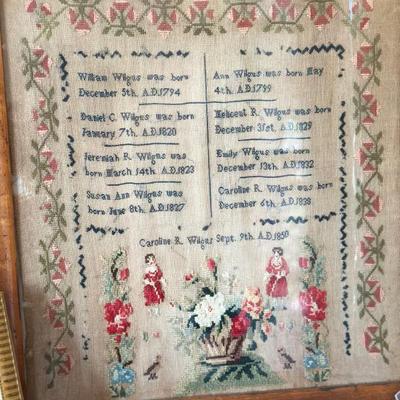 William Wilgus was born
December 5th. A.D.1794
Ann Wilgus was born May
4th. A.D.1799
Daniel C. Wilgus was born
January 7th. A.D.1820
Mehcent R. Wilgus was born
December 31st. A.D.1829
Jeremiah R. Wilgus was
born March 14th. A.D.1823
Emily Wilgus was born
December 13th. A.D.1832
Susan Ann Wilgus was
born June 8th. A.D.1827
Caroline R. Wilgus was born
December 6th. A.D.1838
Caroline R. Wilgus Sept. 9th. A.D.1850